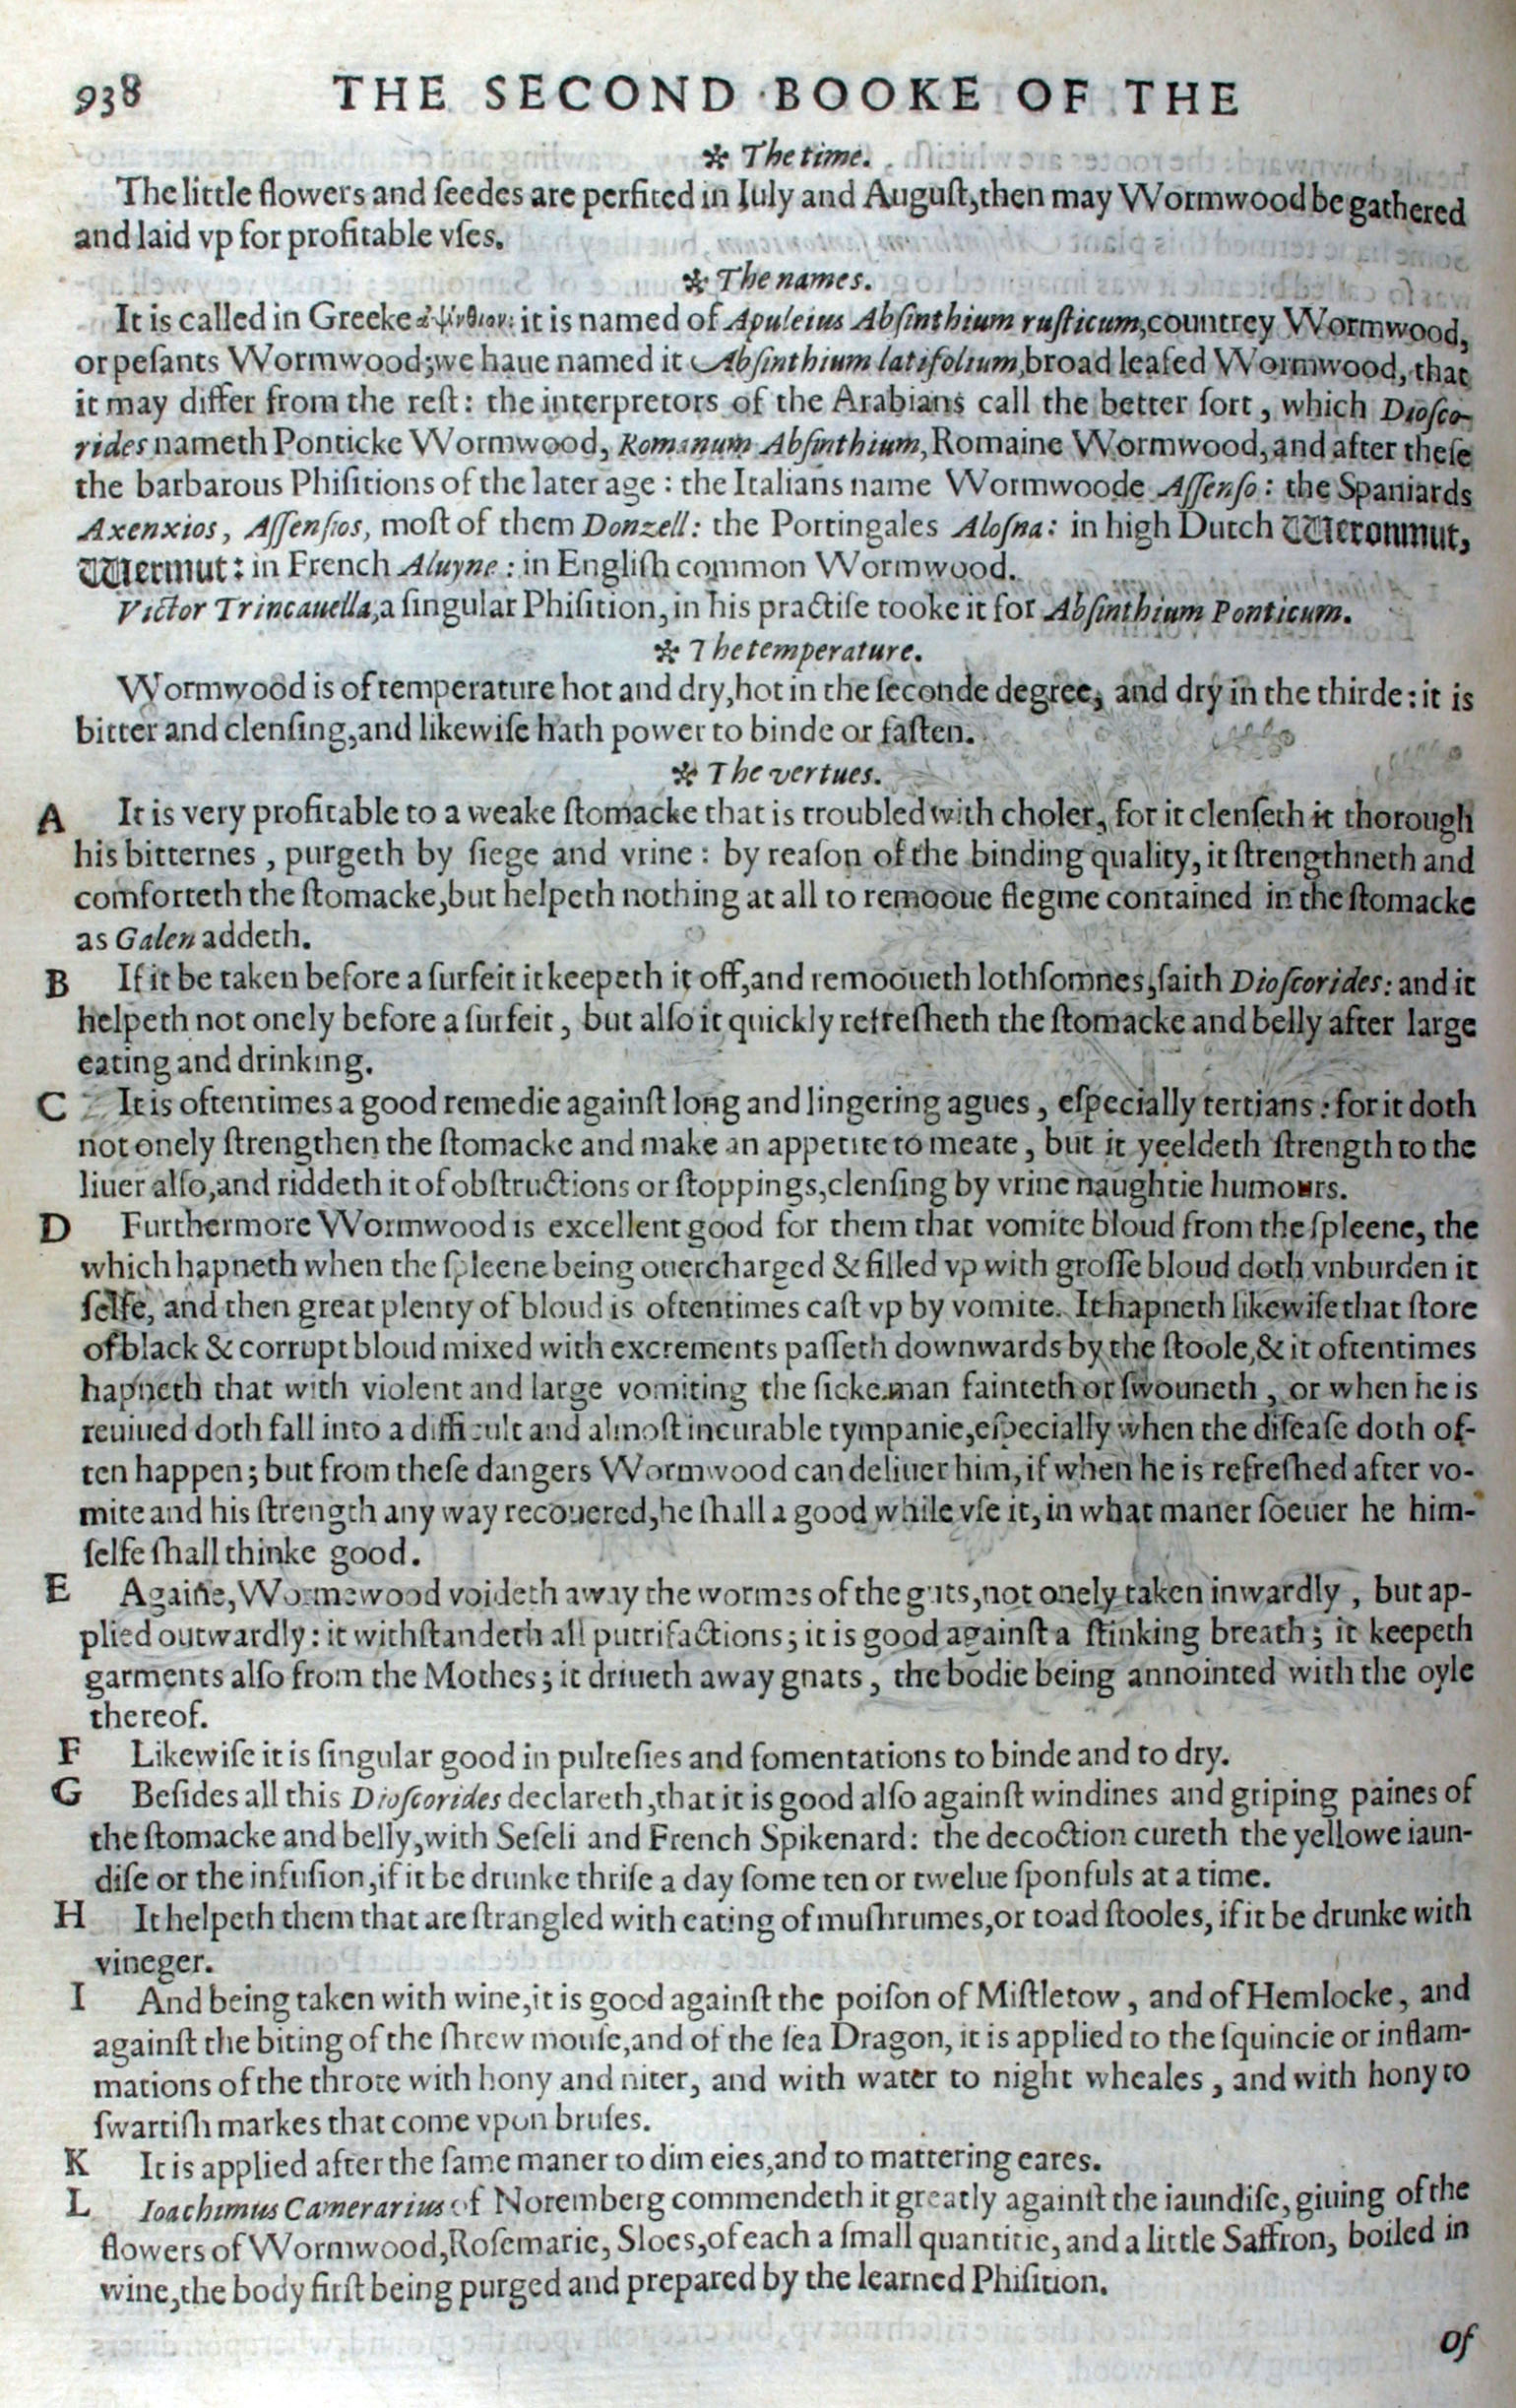 938 THE SECOND BOOKE OF THE
✲ The time.
The little flowers and ſeedes are perfited in Iuly and Auguſt, then may Wormwood be gathered
and laid vp for profitable vſes.
✲ The names.
It is called in Greeke ἀψίνθιον: it is named of Apuleius Abſinthium ruſticum, countrey Wormwood,
or peſants Wormwood; we haue named it Abſinthium latifolium, broad leafed Wormwood, that
it may differ from the reſt: the interpretors of the Arabians call the better ſort, which Dioſco-
rides nameth Ponticke Wormwood, Romanum Abſinthium, Romaine Wormwood, and after theſe
the barbarous Phiſitions of the later age: the Italians name Wormwoode Aſſenſo: the Spaniards
Axenxios, Aſſenſios, moſt of them Donzell: the Portingales Aloſna: in high Dutch Weronmut,
Wermut: in French Aluyne: in Engliſh common Wormwood.
Victor Trincauella, a ſingular Phiſition, in his practiſe tooke it for Abſinthium Ponticum.
✲ The temperature.
Wormwood is of temperature hot and dry, hot in the ſeconde degree, and dry in the thirde: it is
bitter and clenſing, and likewiſe hath power to binde or faſten.
✲ The vertues.
A It is very profitable to a weake ſtomacke that is troubled with choler, for it clenſeth it thorough
his bitternes, purgeth by ſiege and vrine: by reaſon of the binding quality, it ſtrengthneth and
comforteth the ſtomacke, but helpeth nothing at all to remooue flegme contained in the ſtomacke
as Galen addeth.
B If it be taken before a ſurfeit it keepeth it off, and remooueth lothſomnes, ſaith Dioſcorides: and it
helpeth not onely before a ſurfeit, but alſo it quickly refreſheth the ſtomacke and belly after large
eating and drinking.
C It is oftentimes a good remedie againſt long and lingering agues, eſpecially tertians: for it doth
not onely ſtrengthen the ſtomacke and make an appetite to meate, but it yeeldeth ſtrength to the
liuer alſo, and riddeth it of obſtructions or ſtoppings, clenſing by vrine naughtie humours.
D Furthermore Wormwood is excellent good for them that vomite bloud from the ſpleene, the
which hapneth when the ſpleene being ouercharged & filled vp with groſſe bloud doth vnburden it
ſelfe, and then great plenty of bloud is oftentimes caſt vp by vomite. It hapneth likewiſe that ſtore
of black & corrupt bloud mixed with excrements paſſeth downwards by the ſtoole, & it oftentimes
hapneth that with violent and large vomiting the ſicke man fainteth or ſwouneth, or when he is
reuiued doth fall into a difficult and almoſt incurable tympanie, eſpecially when the diſeaſe doth of-
ten happen; but from theſe dangers Wormwood can deliuer him, if when he is refreſhed after vo-
mite and his ſtrength any way recouered, he ſhall a good while vſe it, in what maner ſoeuer he him-
ſelfe ſhall thinke good.
E Againe, Wormewood voideth away the wormes of the guts, not onely taken inwardly, but ap-
plied outwardly: it withſtandeth all putrifactions; it is good againſt a ſtinking breath; it keepeth
garments alſo from the Mothes; it driueth away gnats, the bodie being annointed with the oyle
thereof.
F Likewiſe it is ſingular good in pulteſies and fomentations to binde and to dry.
G Beſides all this Dioſcorides declareth, that it is good alſo againſt windines and griping paines of
the ſtomacke and belly, with Seſeli and French Spikenard: the decoction cureth the yellowe iaun-
diſe or the infuſion, if it be drunke thriſe a day ſome ten or twelue ſponfuls at a time.
H It helpeth them that are ſtrangled with eating of muſhrumes, or toad ſtooles, if it be drunke with
vineger.
I And being taken with wine, it is good againſt the poiſon of Miſtletow, and of Hemlocke, and
againſt the biting of the ſhrew mouſe, and of the ſea Dragon, it is applied to the ſquincie or inflam-
mations of the throte with hony and niter, and with water to night wheales, and with hony to
ſwartiſh markes that come vpon bruſes.
K It is applied after the ſame maner to dim eies, and to mattering eares.
L Ioachimus Camerarius of Noremberg commendeth it greatly againſt the iaundiſe, giuing of the
flowers of Wormwood, Roſemarie, Sloes, of each a ſmall quantitie, and a little Saffron, boiled in
wine, the body firſt being purged and prepared by the learned Phiſition.
Of